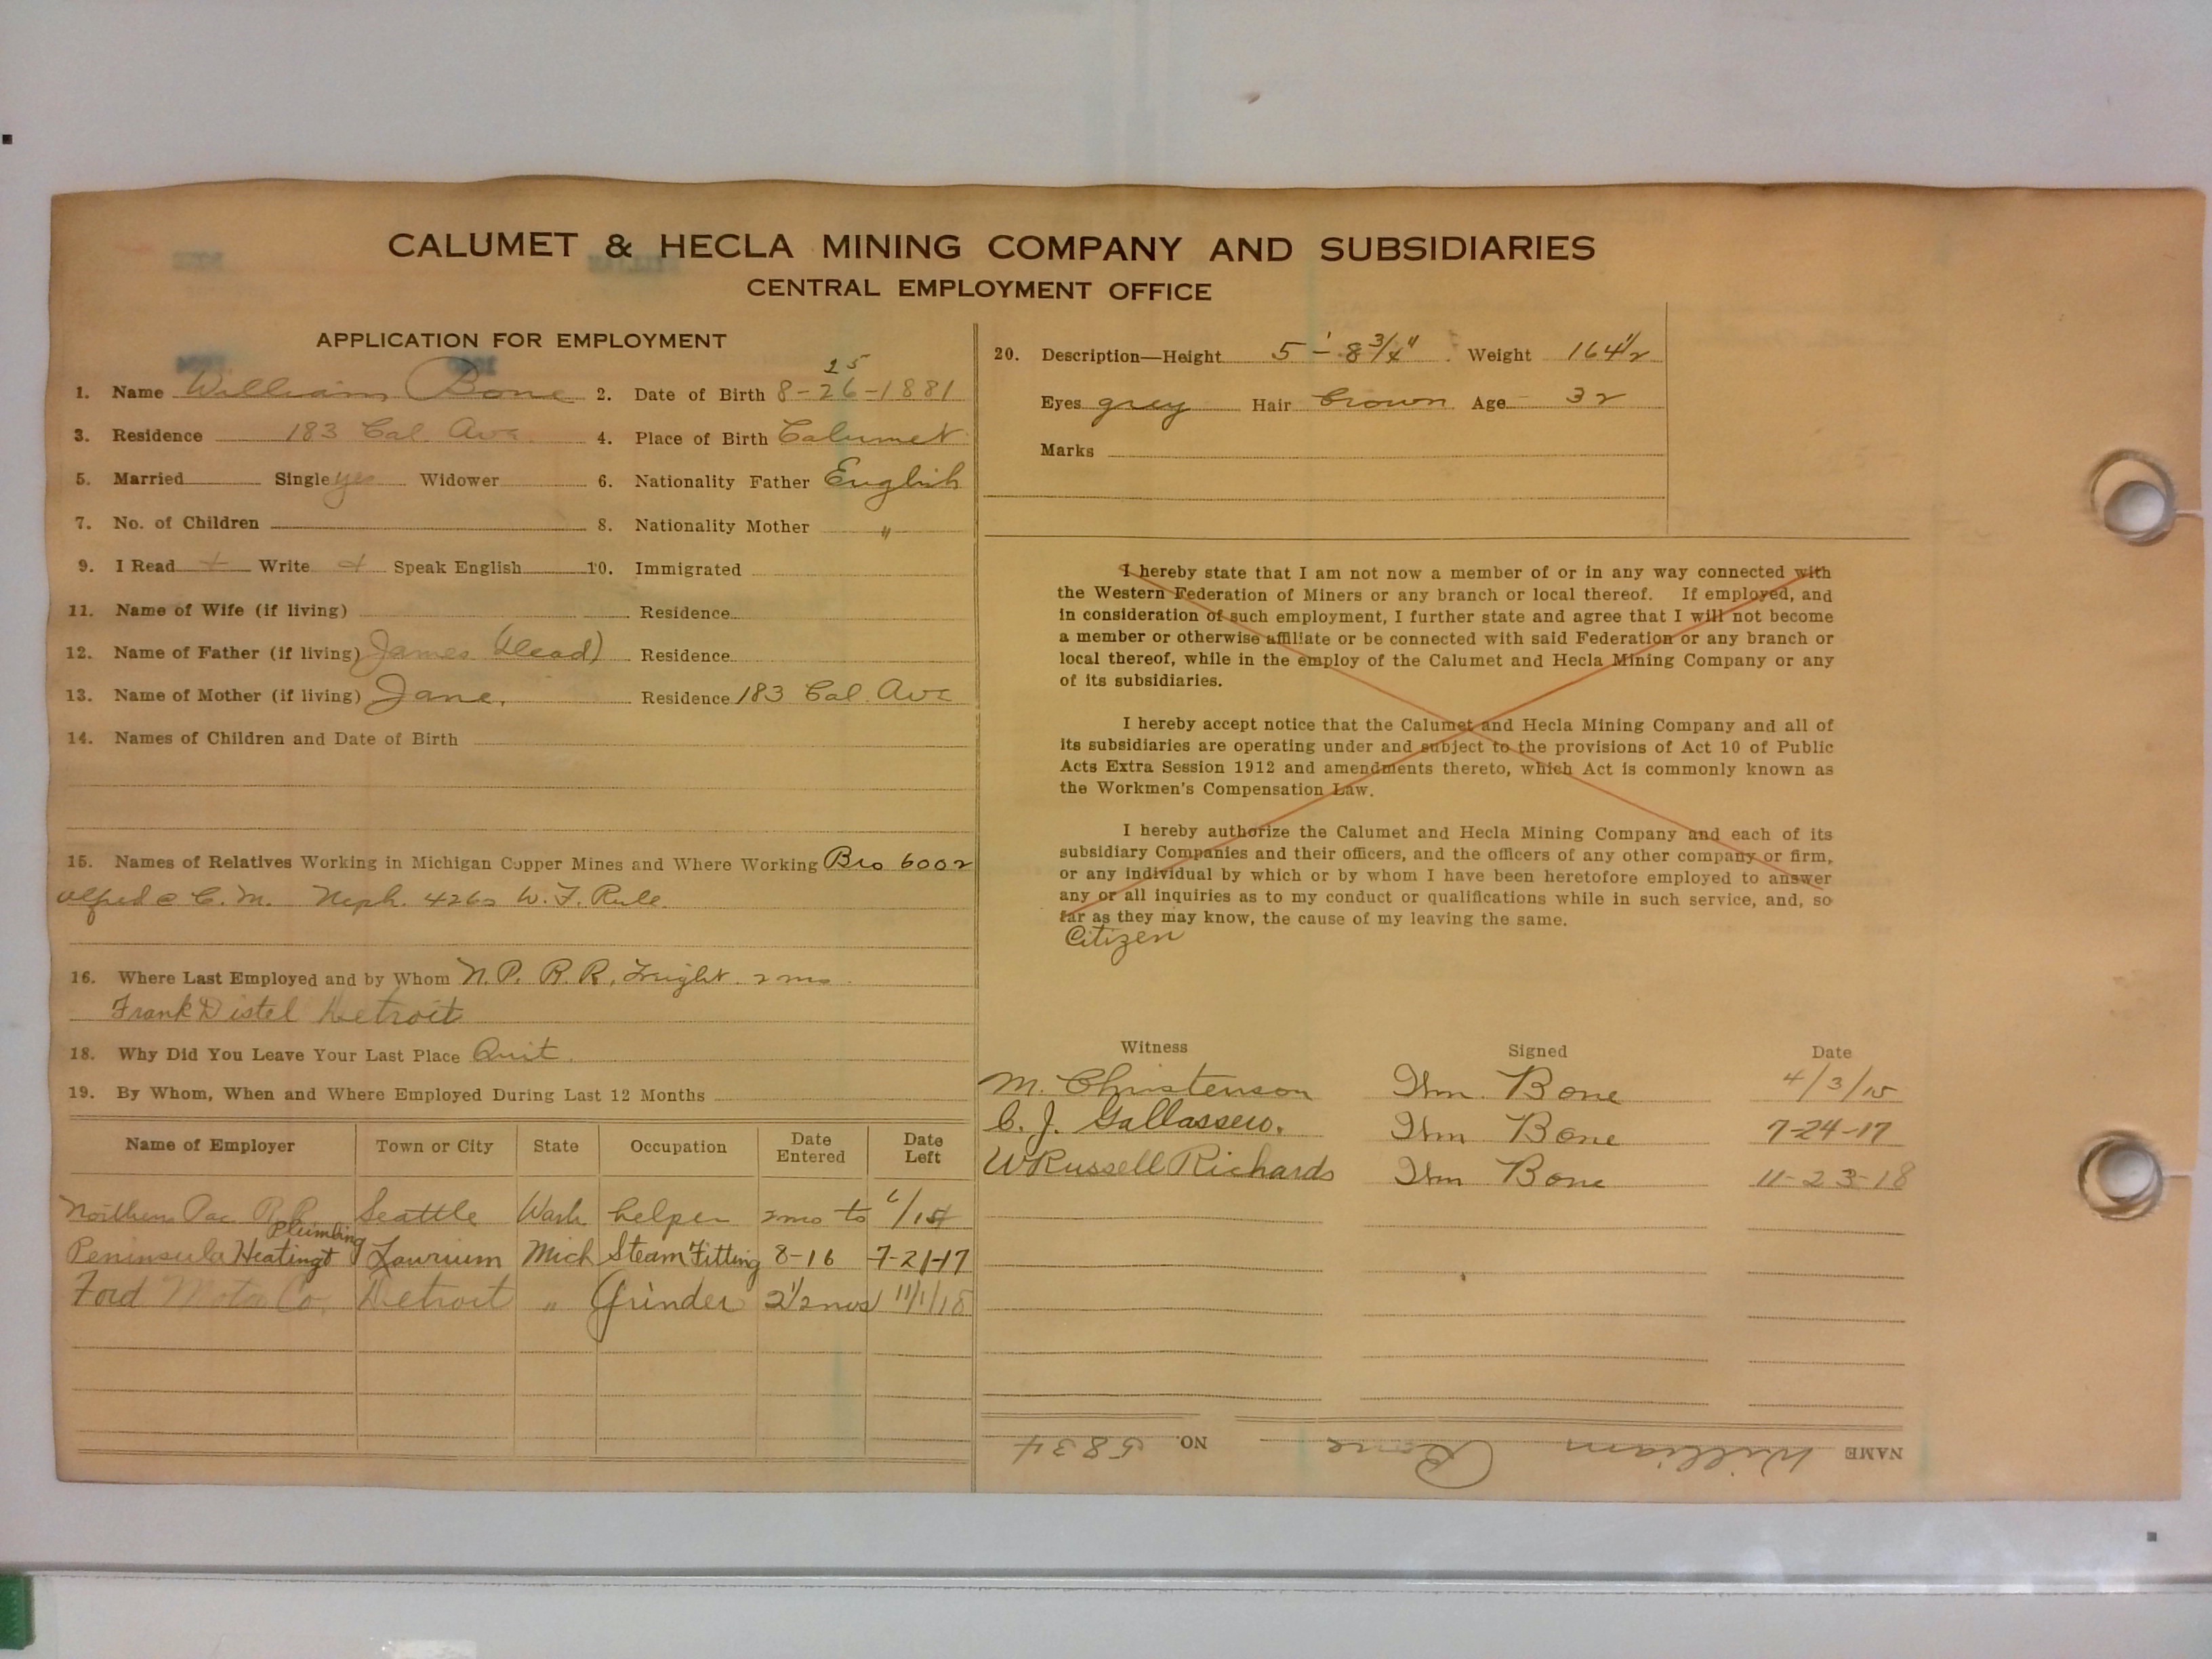 CALUMET & HECLA MINING COMPANY AND SUBSIDIARIES
CENTRAL EMPLOYMENT OFFICE
APPLICATION FOR EMPLOYMENT
25
1. Name William Bone 2. Date of Birth 8-26-1881
3. Residence 183 Cal. Ave. 4. Place of Birth Calumet
5. Married Single yes Widower 6. Nationality Father English
7. No. of Children 8. Nationality Mother "
9. I Read + Write + Speak English 10. Immigrated
11. Name of Wife (if living) Residence
12. Name of Father (if living) James (dead) Residence
13. Name of Mother (if living) Jane. Residence 183 Cal. Ave
14. Names of Children and Date of Birth
15. Names of Relatives Working in Michigan Copper Mines and Where Working Bro 6002
Alfred @ C. M. Neph. 4260 W. F. Rule.
16. Where Last Employed and by Whom N. P. R. R. Freight. 2 mo
Frank Distel Detroit
18. Why Did You Leave Your Last Place Quit.
19. By Whom, When and Where Employed During Last 12 Months
Name of Employer Town or City State Occupation Date Entered Date Left
Northern Pac. R. R. Seattle Wash helper 2mo to
Plumbing
Peninsula Heating & Laurium Mich Steam Fitting 8-16 7-21-17
Ford Motor Co. Detroit " Grinder 2 1/2 mos 11/1/18
20. Description—Height 5'-8 3/4" Weight 164 1/2
Eyes grey Hair brown Age 32
Marks
I hereby state that I am not now a member of or in any way connected with
the Western Federation of Miners or any branch or local thereof. If employed, and
in consideration of such employment, I further state and agree that I will not become
a member or otherwise affiliate or be connected with said Federation or any branch or
local thereof, while in the employ of the Calumet and Hecla Mining Company or any
of its subsidiaries.
I hereby accept notice that the Calumet and Hecla Mining Company and all of
its subsidiaries are operating under and subject to the provisions of Act 10 of Public
Acts Extra Session 1912 and amendments thereto, which Act is commonly known as
the Workmen's Compensation Law.
I hereby authorize the Calumet and Hecla Mining Company and each of its
subsidiary Companies and their officers, and the officers of any other company or firm,
or any individual by which or by whom I have been heretofore employed to answer
any or all inquiries as to my conduct or qualifications while in such service, and, so
far as they may know, the cause of my leaving the same.
Citizen
Witness Signed Date
M. Christenson Wm. Bone 4/3/15
C. J. Gallassero. Wm Bone 7-24-17
W Russell Richards Wm Bone 11-23-18
NAME William Bone NO. 5834